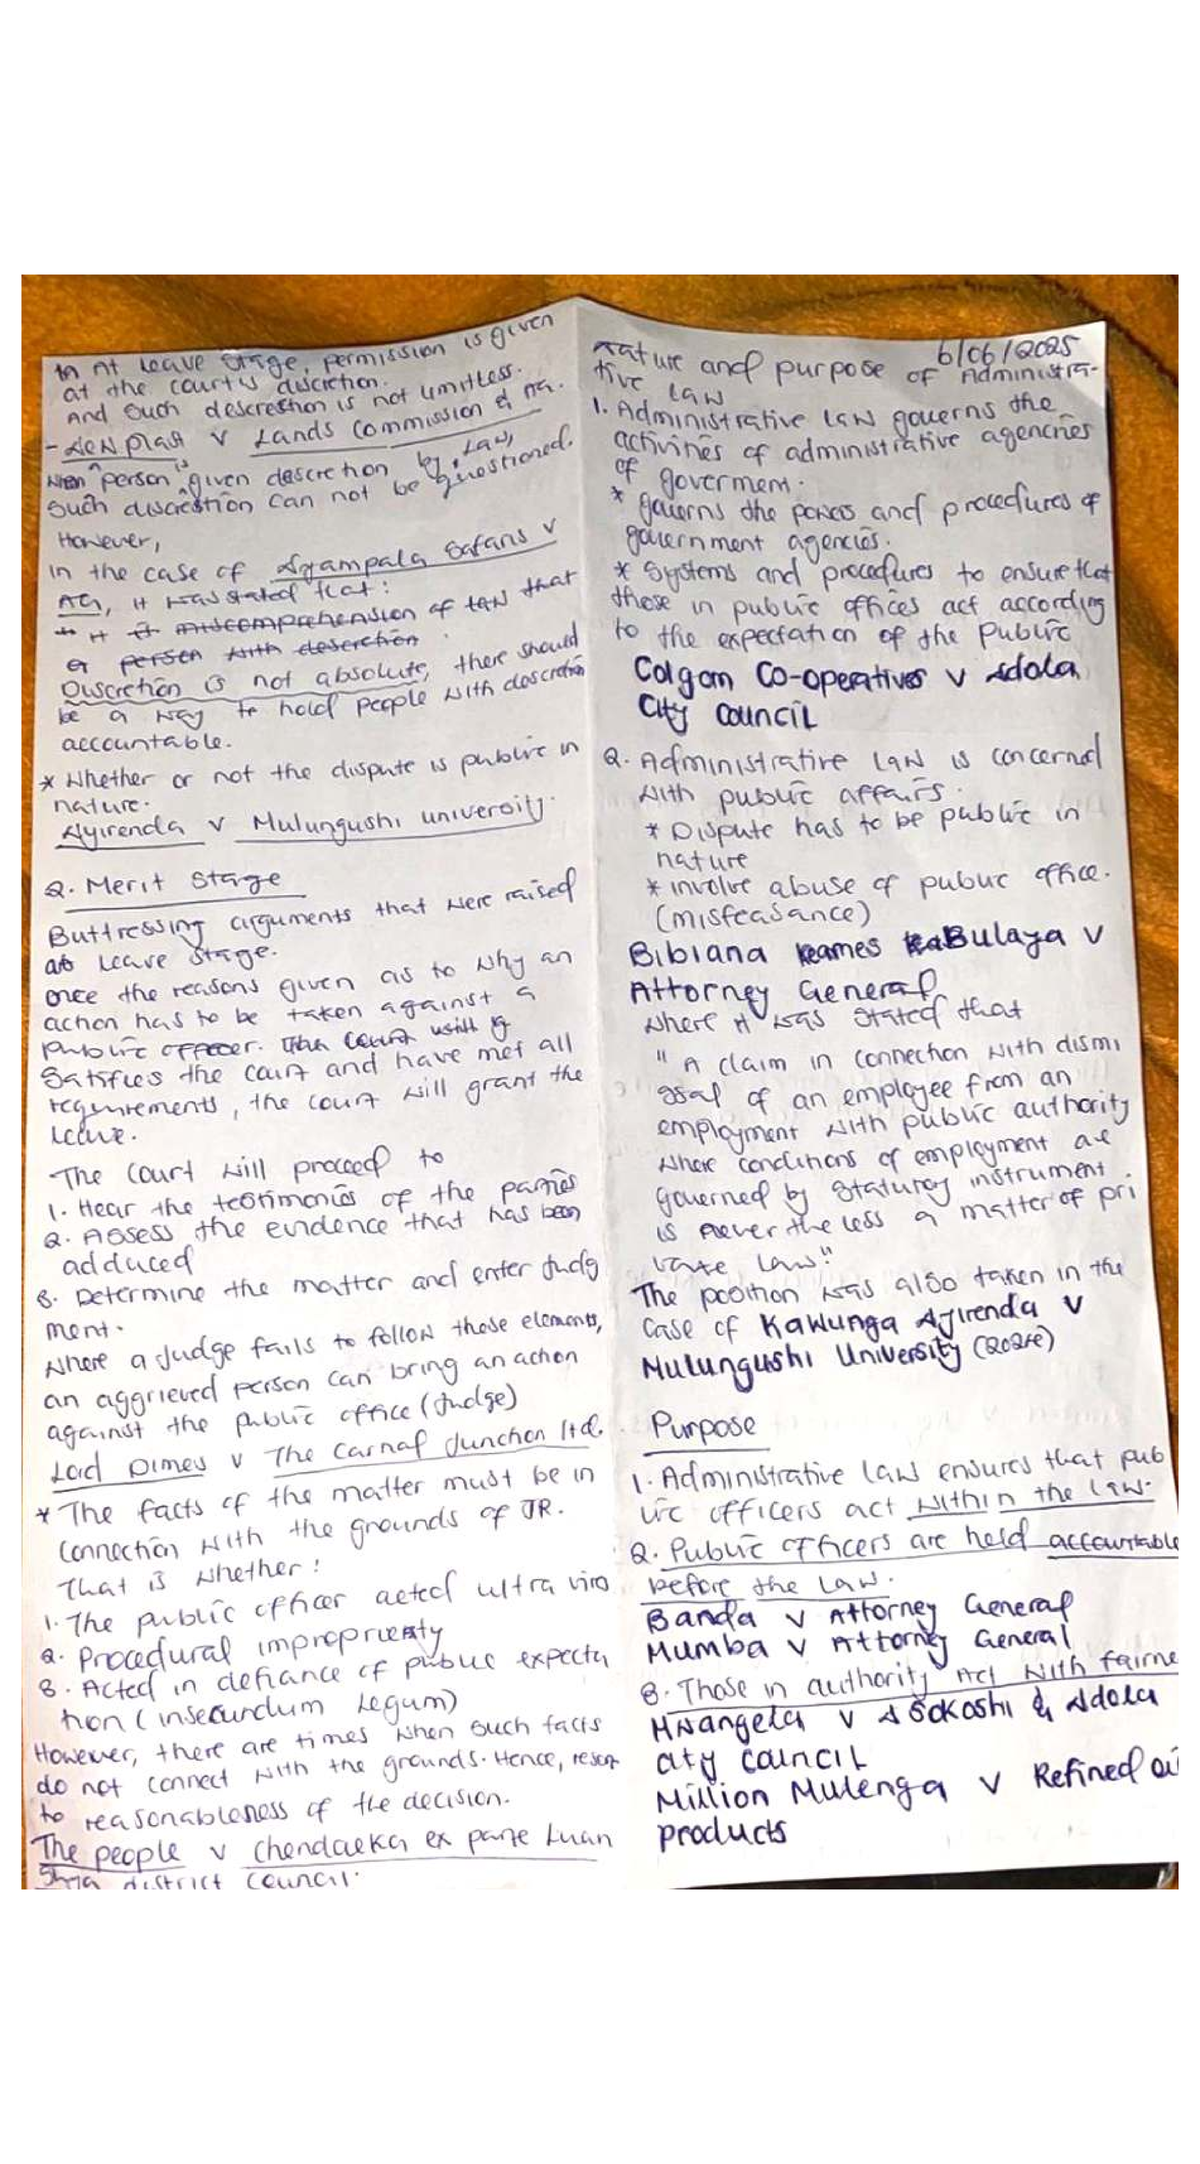 At Leave stage, permission is given
at the court's discretion.
And such descrestion is not limitless.
- Newplast v Lands Commission & AG.
When person is given descretion by Law,
such discrestion can not be questioned.
However,
in the case of Nyampala Safaris v
AG, it was stated that:
it is miscomprehension of law that
a person with descretion
Discretion is not absolute, there should
be a way to hold people with descretion
accountable.
* Whether or not the dispute is public in
nature.
Nyirenda v Mulungushi university.
2. Merit Stage
Buttressing arguments that were raised
at Leave stage.
once the reasons given as to why an
action has to be taken against a
public officer. The court will
satisfies the court and have met all
requirements, the court will grant the
leave.
The court will proceed to
1. Hear the testimonies of the parties
2. Assess the evidence that has been
adduced
3. Determine the matter and enter Judg
ment.
Where a Judge fails to follow these elements,
an aggrieved person can bring an action
against the public office (Judge)
Loid Dimes v The Carnaf Junction ltd.
* The facts of the matter must be in
connection with the grounds of JR.
That is whether:
1. The public officer acted ultra vires
2. Procedural impropriety
3. Acted in defiance of public expecta
tion (insecundum Legum)
However, there are times when such facts
do not connect with the grounds. Hence, resort
to reasonableness of the decision.
The people v Chendaeka ex parte Luan
shya district Council.
6/06/2025
Nature and purpose of Administra-
tive law
1. Administrative law governs the
activities of administrative agencies
of goverment.
* governs the powers and procedures of
government agencies.
* Systems and procedures to ensure that
those in public offices act according
to the expectation of the Public
Colgom Co-operatives v Ndola
City Council
2. Administrative law is concerned
with public affairs.
* Dispute has to be public in
nature
* involve abuse of public office.
(misfeasance)
Bibiana Kames Bulaya v
Attorney General
where it was stated that
" A claim in connection with dismi
ssal of an employee from an
employment with public authority
where conditions of employment are
governed by statutory instrument
is never the less a matter of pri
vate law."
The position was also taken in the
case of Kawunga Nyirenda v
Mulungushi University (2024)
Purpose
1. Administrative law ensures that pub
lic officers act within the law.
2. Public officers are held accountable
before the law.
Banda v Attorney General
Mumba v Attorney General
3. Those in authority Act with fairne
Hwangela v Nsokoshi & Ndola
city council
Million Mulenga v Refined oi
products